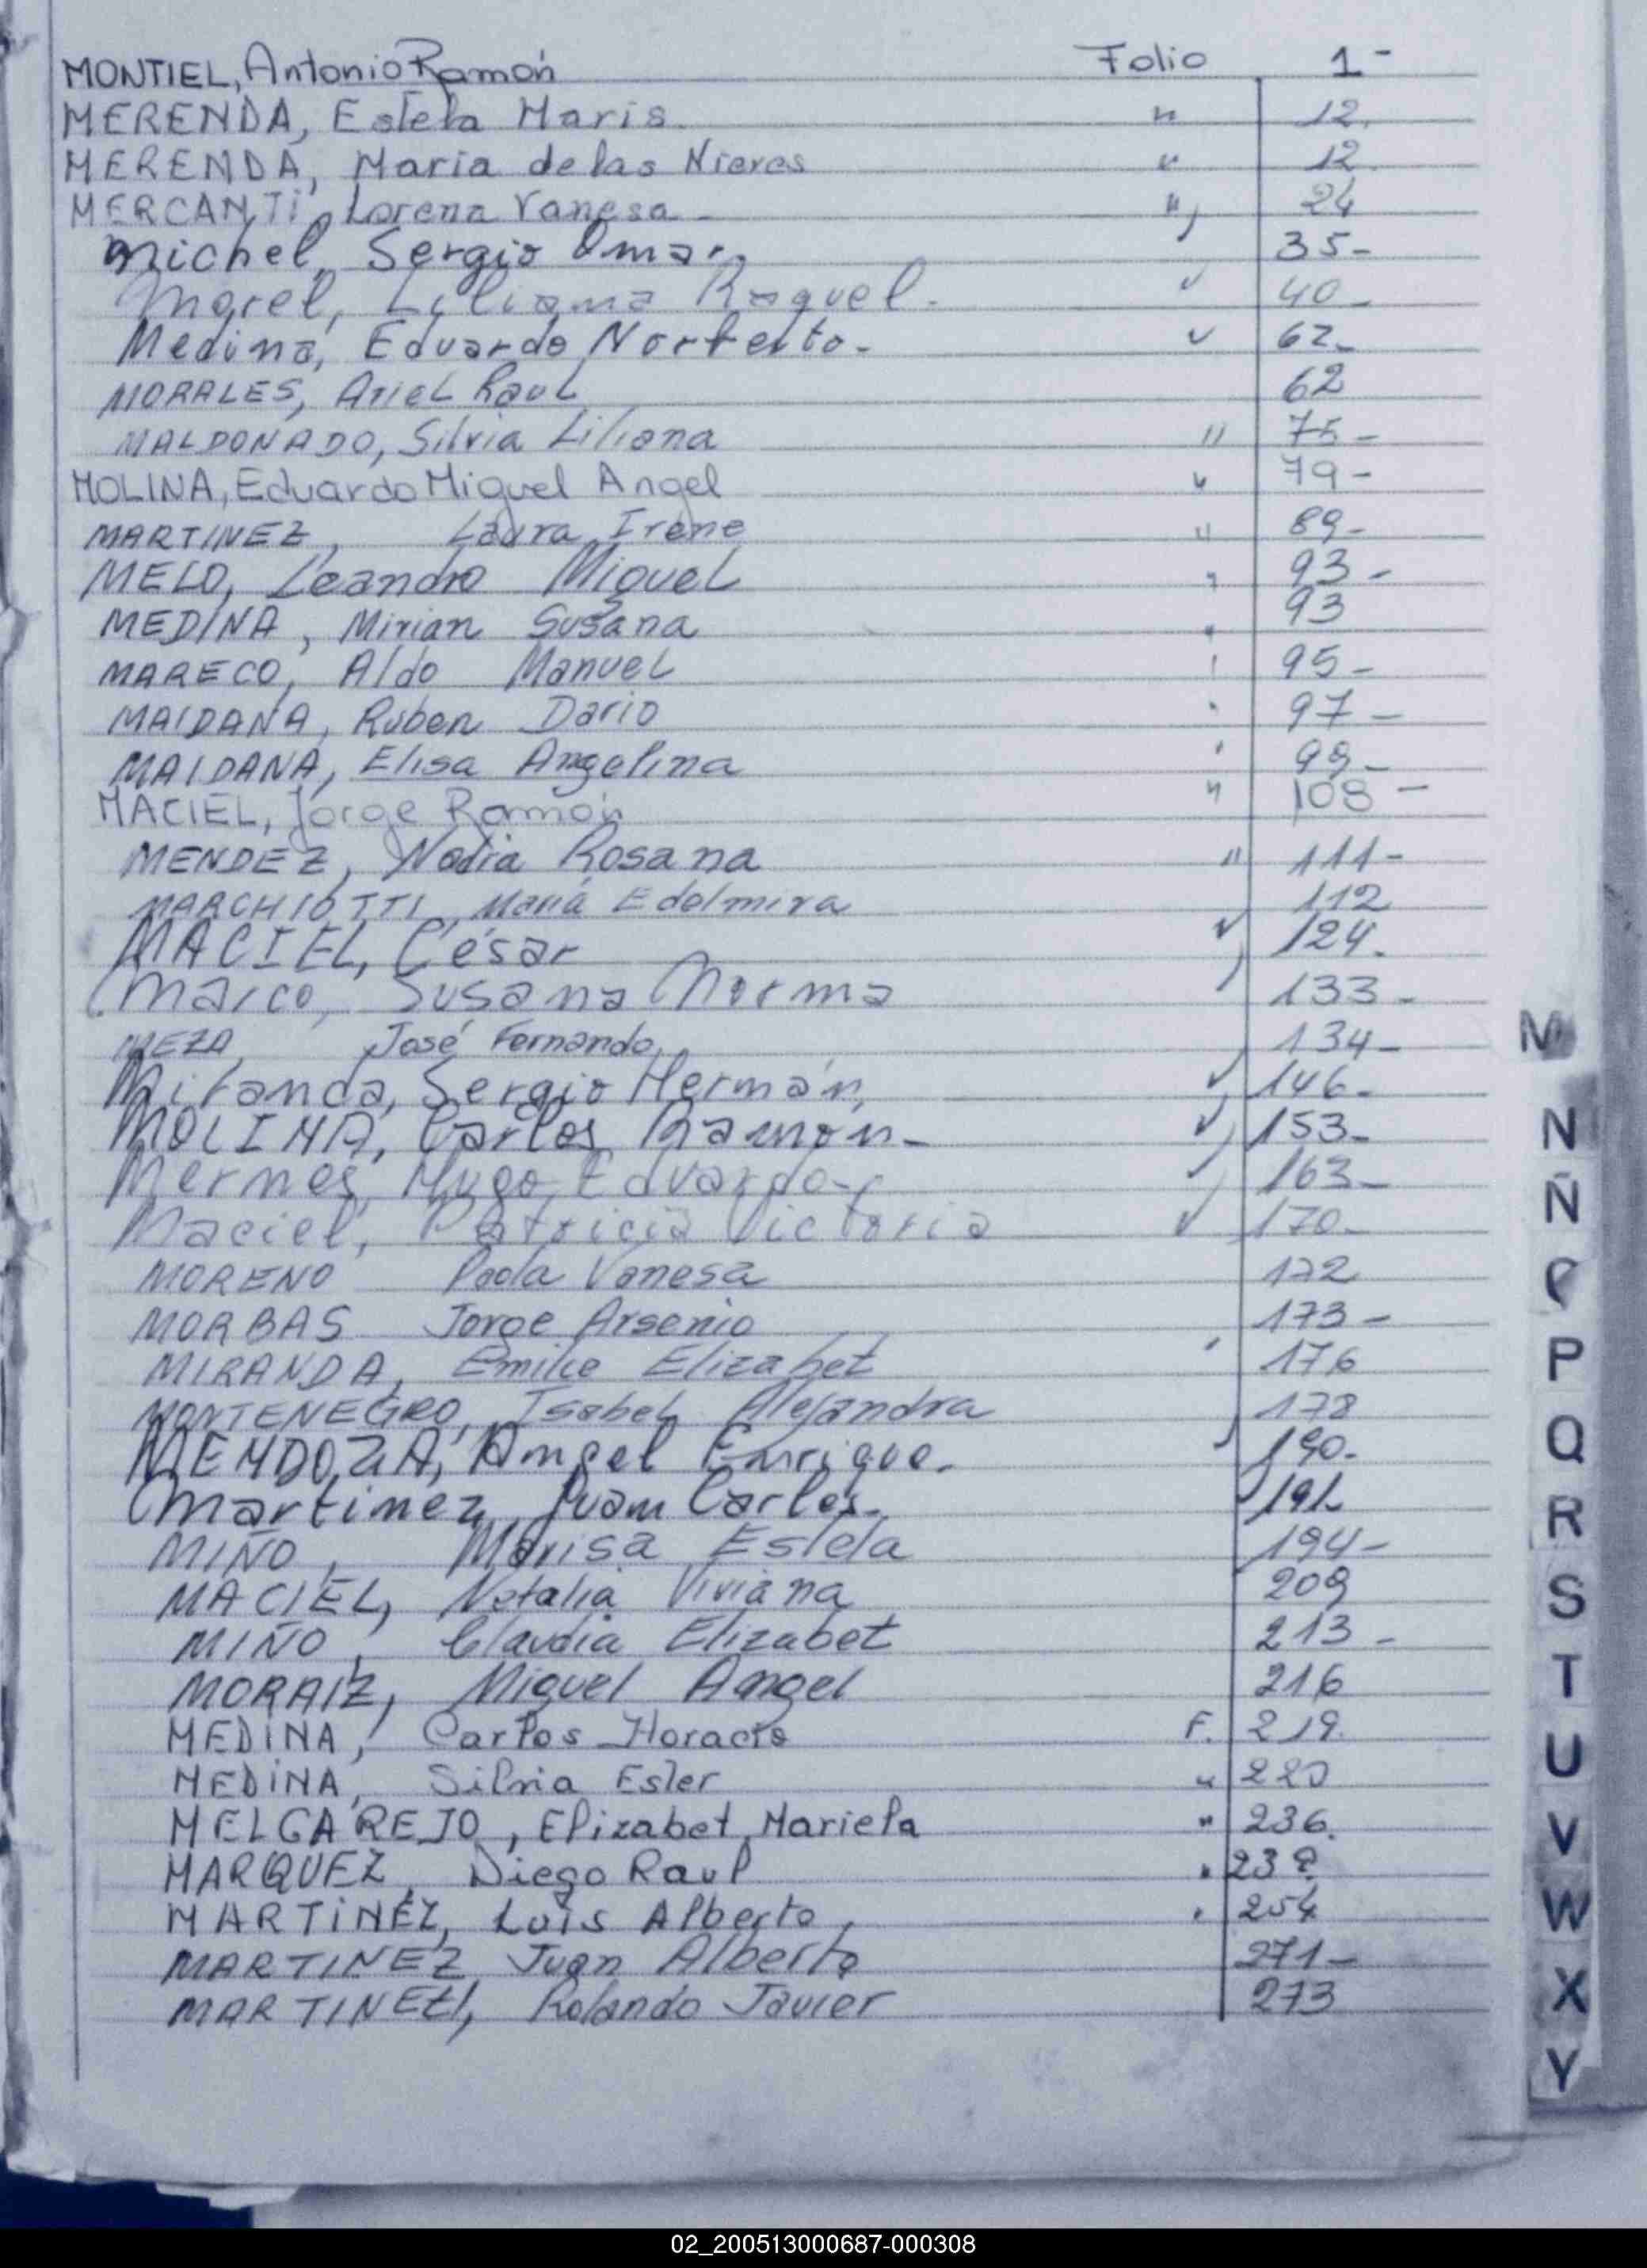 MONTIEL, Antonio Ramón Folio 1-
MERENDA, Estela Maris " 12.
MERENDA, Maria de las Nieves " 12
MERCANTI, Lorena Vanesa " 24
Michel, Sergio Omar. 35-
Morel, Liliana Raquel. " 40-
Medina, Eduardo Norberto. " 62-
MORALES, Ariel Raul 62
MALDONADO, Silvia Liliana " 75-
MOLINA, Eduardo Miguel Angel " 79-
MARTINEZ, Laura Irene " 89-
MELO, Leandro Miguel " 93-
MEDINA, Mirian Susana " 93
MARECO, Aldo Manuel " 95-
MAIDANA, Ruben Dario " 97-
MAIDANA, Elisa Angelina " 99-
MACIEL, Jorge Ramón " 108-
MENDEZ, Nadia Rosana " 111-
MARCHIOTTI, María Edelmira 112
MACIEL, César " 124.
Marco, Susana Norma 133-
MEZA José Fernando 134-
Miranda, Sergio Hermán, 146-
MOLINA, Carlos Ramón- 153-
Mermes, Hugo Eduardo- 163-
Maciel, Patricia Victoria 170-
MORENO Paola Vanesa 172
MORBAS Jorge Arsenio 173-
MIRANDA, Emilce Elizabet 176
MONTENEGRO, Isabel Alejandra 178
MENDOZA, Angel Enrique. 190-
Martinez, Juan Carlos. 191-
MIÑO, Marisa Estela 194-
MACIEL, Natalia Viviana 209
MIÑO, Claudia Elizabet 213-
MORAIZ, Miguel Angel 216
MEDINA, Carlos Horacio F. 219.
MEDINA, Silvia Ester " 220
MELGAREJO, Elizabet Mariela " 236.
MARQUEZ, Diego Raul "
MARTINEZ, Luis Alberto " 254
MARTINEZ Juan Alberto 271-
MARTINETI, Rolando Javier 273
M
N
Ñ
P
Q
R
S
T
U
V
W
X
Y
02_200513000687-000308